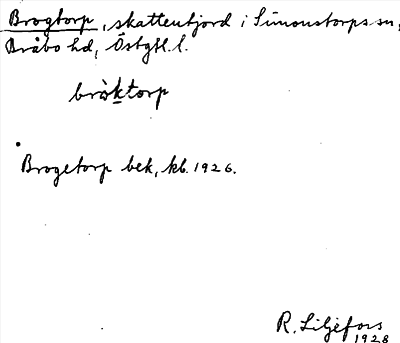 Brogtorp, skattenfjord i Simonstorps sn,
Bråbo hd, Östgtl. l.
bròktorp
Brogetorp bek, kb. 1926.
R. Liljefors
1928